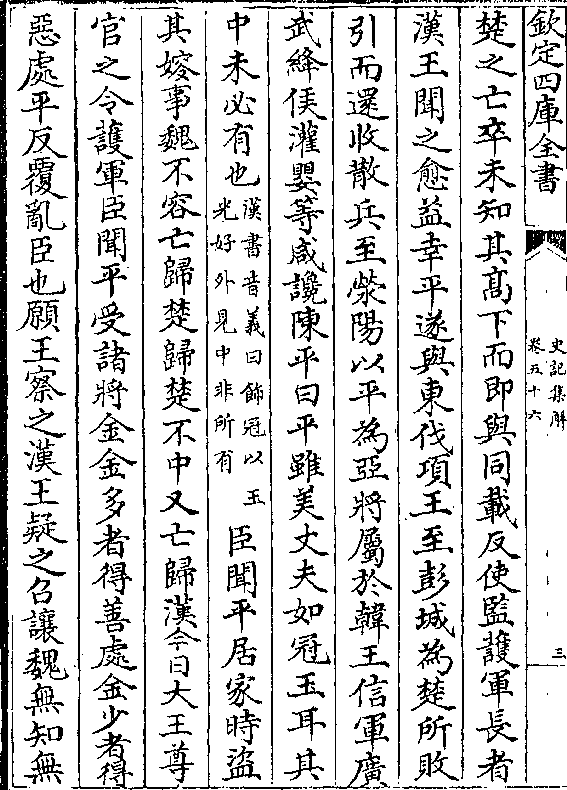 欽定四庫全書
史記集解
卷五十六
三
楚之亡卒未知其高下而即與同載反使監護軍長者
漢王聞之愈益幸平遂與東伐項王至彭城為楚所敗
引而還收散兵至滎陽以平為亞將屬於韓王信軍廣
武絳侯灌嬰等咸讒陳平曰平雖美丈夫如冠玉耳其
中未必有也
漢書音義曰飾冠以玉
光好外見中非所有
臣聞平居家時盜
其嫂事魏不容亡歸楚歸楚不中又亡歸漢今日大王尊
官之令護軍臣聞平受諸將金金多者得善處金少者得
惡處平反覆亂臣也願王察之漢王疑之召讓魏無知無